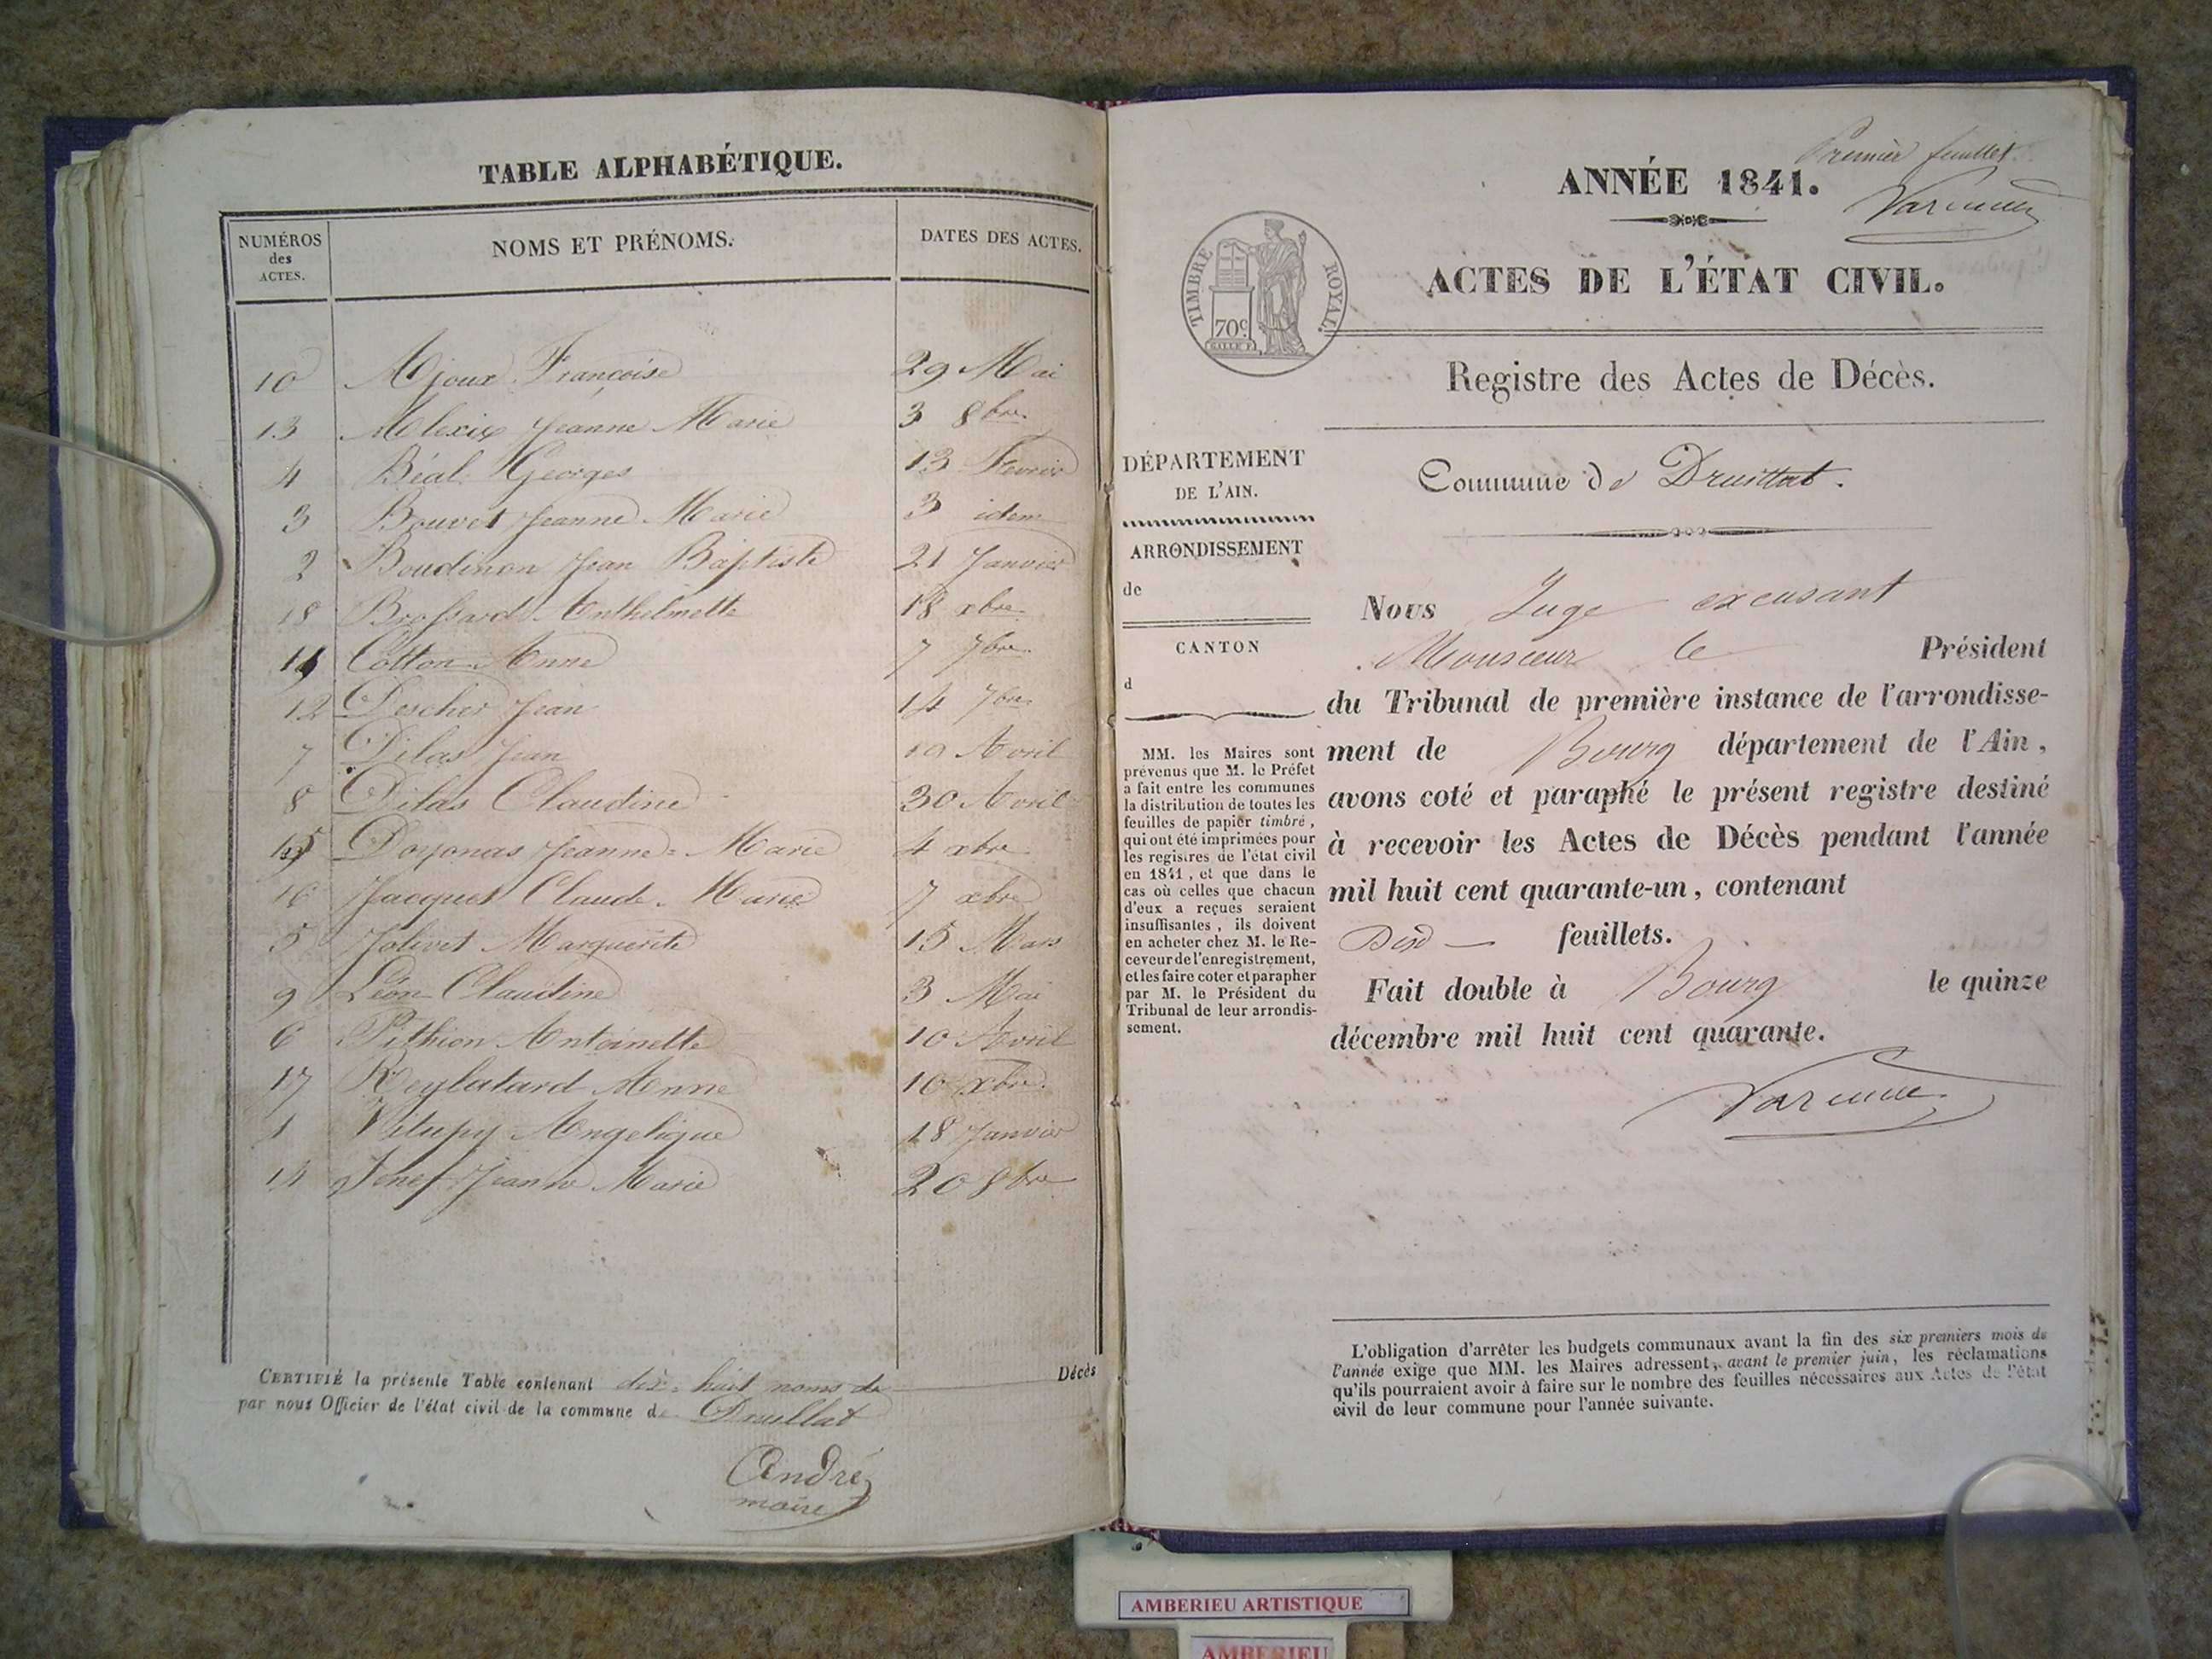 TABLE ALPHABÉTIQUE.
NUMÉROS des ACTES.
NOMS ET PRÉNOMS.
DATES DES ACTES.
10 Ajoux Françoise 29 Mai
13 Alexix Jeanne Marie 3 8bre
4 Béal Georges 13 Février
3 Bouvet Jeanne Marie 3 idem
2 Boudinon Jean Baptiste 21 Janvier
18 Brossard Anthelmette 18 xbre
11 Cotton Anne 7 7bre
12 Descher Jean 14 7bre
7 Dilas Jean 19 Avril
8 Dilas Claudine 30 Avril
15 Doyonas Jeanne-Marie 4 xbre
16 Jacquet Claude-Marie 7 xbre
5 Jolivet Marguerite 15 Mars
9 Léon Claudine 3 Mai
6 Pithion Antoinette 10 Avril
17 Reybatard Anne 16 xbre
1 Angelique 18 Janvier
14 Jeanne Marie 20 8bre
CERTIFIÉ la présente Table contenant dix-huit noms de Décès
par nous Officier de l'état civil de la commune de Druillat
André
maire
Premier feuillet.
ANNÉE 1841.
ACTES DE L'ÉTAT CIVIL.
TIMBRE ROYAL.
70c
Registre des Actes de Décès.
DÉPARTEMENT
DE L'AIN.
ARRONDISSEMENT
de
CANTON
d
MM. les Maires sont
prévenus que M. le Préfet
a fait entre les communes
la distribution de toutes les
feuilles de papier timbré,
qui ont été imprimées pour
les registres de l'état civil
en 1841, et que dans le
cas où celles que chacun
d'eux a reçues seraient
insuffisantes, ils doivent
en acheter chez M. le Re-
ceveur de l'enregistrement,
et les faire coter et parapher
par M. le Président du
Tribunal de leur arrondis-
sement.
Commune de Druillat.
Nous Juge excusant
Monsieur le Président
du Tribunal de première instance de l'arrondisse-
ment de Bourg département de l'Ain,
avons coté et paraphé le présent registre destiné
à recevoir les Actes de Décès pendant l'année
mil huit cent quarante-un, contenant
Dix feuillets.
Fait double à Bourg le quinze
décembre mil huit cent quarante.
L'obligation d'arrêter les budgets communaux avant la fin des six premiers mois de
l'année exige que MM. les Maires adressent, avant le premier juin, les réclamations
qu'ils pourraient avoir à faire sur le nombre des feuilles nécessaires aux Actes de l'état
civil de leur commune pour l'année suivante.
AMBERIEU ARTISTIQUE
AMBERIEU